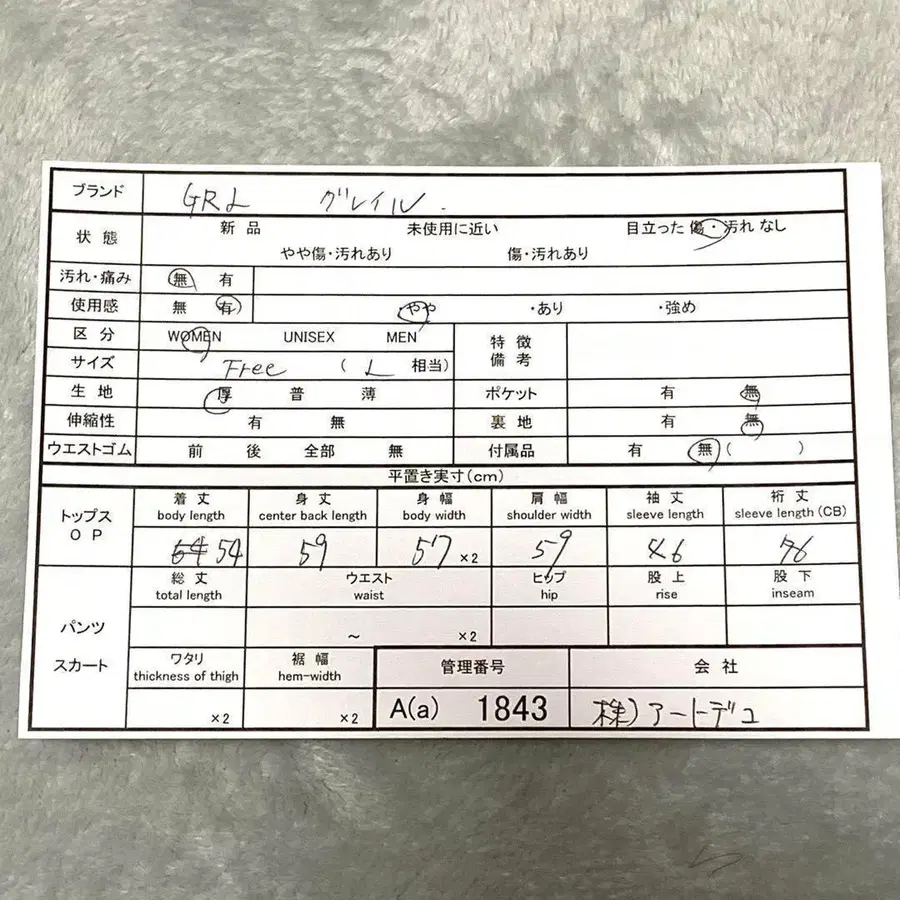 ブランド GRL グレイル
状態 新品 未使用に近い 目立った傷・汚れなし
やや傷・汚れあり 傷・汚れあり
汚れ・痛み 無 有
使用感 無 有 やや ・あり ・強め
区分 WOMEN UNISEX MEN 特徴
備考
サイズ Free ( L 相当)
生地 厚 普 薄 ポケット 有 無
伸縮性 有 無 裏地 有 無
ウエストゴム 前 後 全部 無 付属品 有 無 ( )
平置き実寸(cm)
トップス
OP
着丈 身丈 身幅 肩幅 袖丈 裄丈
body length center back length body width shoulder width sleeve length sleeve length (CB)
54 59 57 ×2 59 46 76
パンツ
スカート
総丈 ウエスト ヒップ 股上 股下
total length waist hip rise inseam
~ ×2
ワタリ 裾幅 管理番号 会社
thickness of thigh hem-width
×2 ×2 A(a) 1843 株)アートデュ